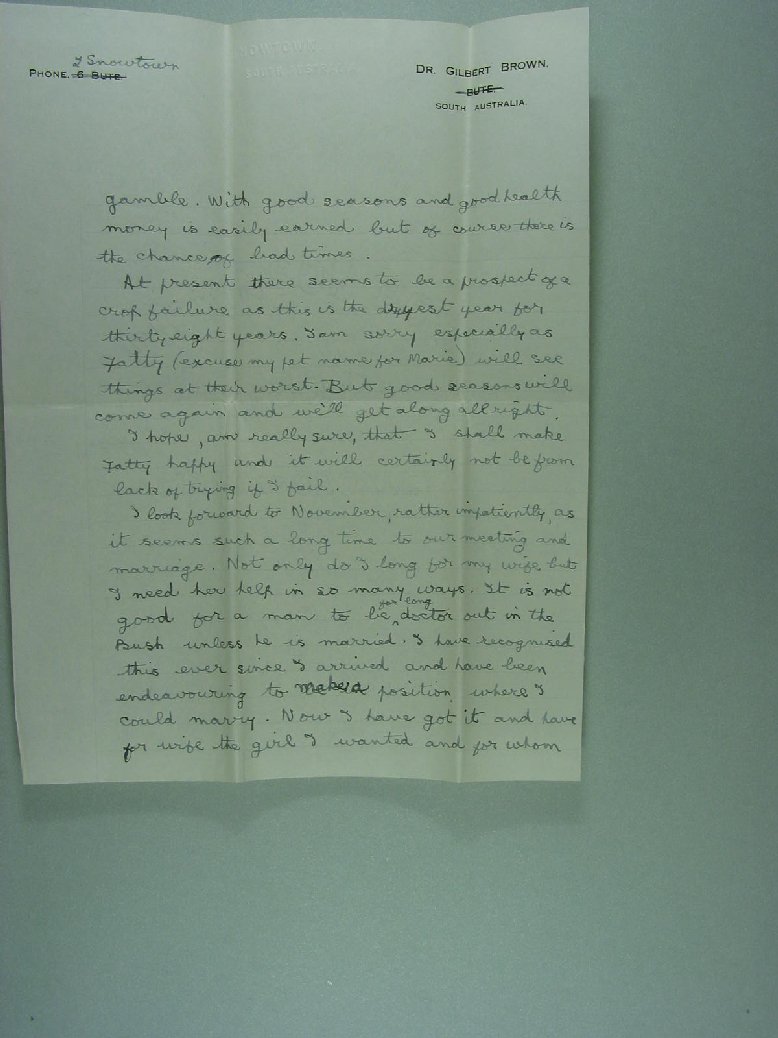 2 Snowtown
PHONE. 6 BUTE.
DR. GILBERT BROWN.
BUTE.
SOUTH AUSTRALIA.
gamble. With good seasons and good health
money is easily earned but of course there is
the chance of bad times.
At present there seems to be a prospect of a
crop failure as this is the dryest year for
thirty eight years. I am sorry especially as
Fatty (excuse my pet name for Marie) will see
things at their worst. But good seasons will
come again and we'll get along all right.
I hope, am really sure, that I shall make
Fatty happy and it will certainly not be from
lack of trying if I fail.
I look forward to November, rather impatiently, as
it seems such a long time to our meeting and
marriage. Not only do I long for my wife but
I need her help in so many ways. It is not
for long
good for a man to be ^ doctor out in the
Bush unless he is married. I have recognised
this ever since I arrived and have been
endeavouring to make a position where I
could marry. Now I have got it and have
for wife the girl I wanted and for whom